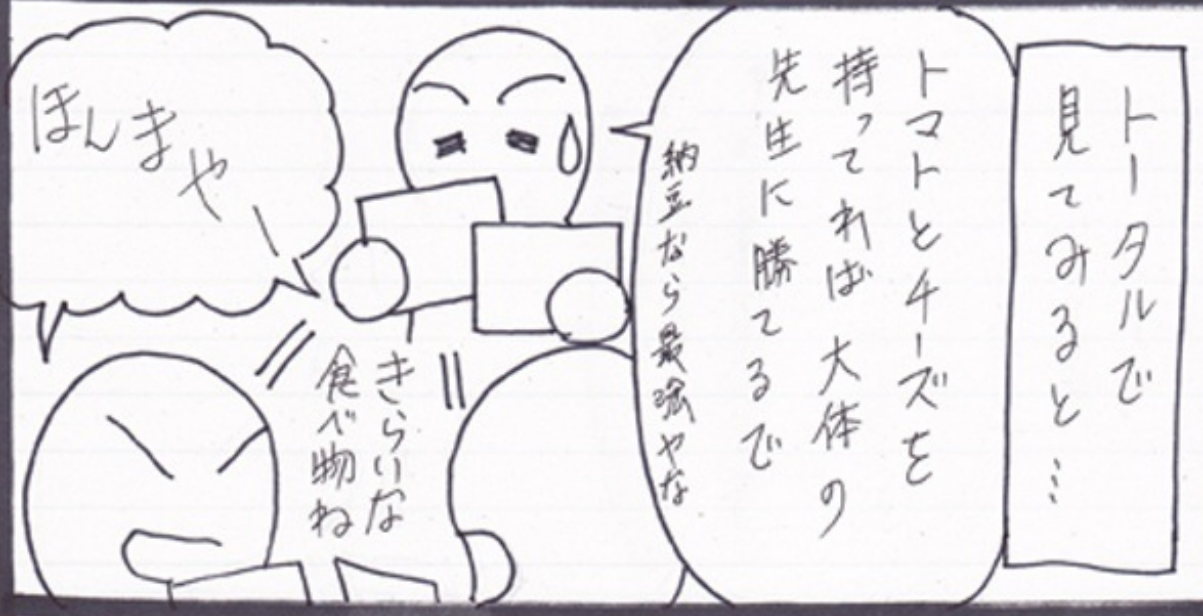 トータルで
見てみると…
トマトとチーズを
持ってれば大体の
先生に勝てるで
納豆なら最強やな
きらいな
食べ物ね
ほんまやー